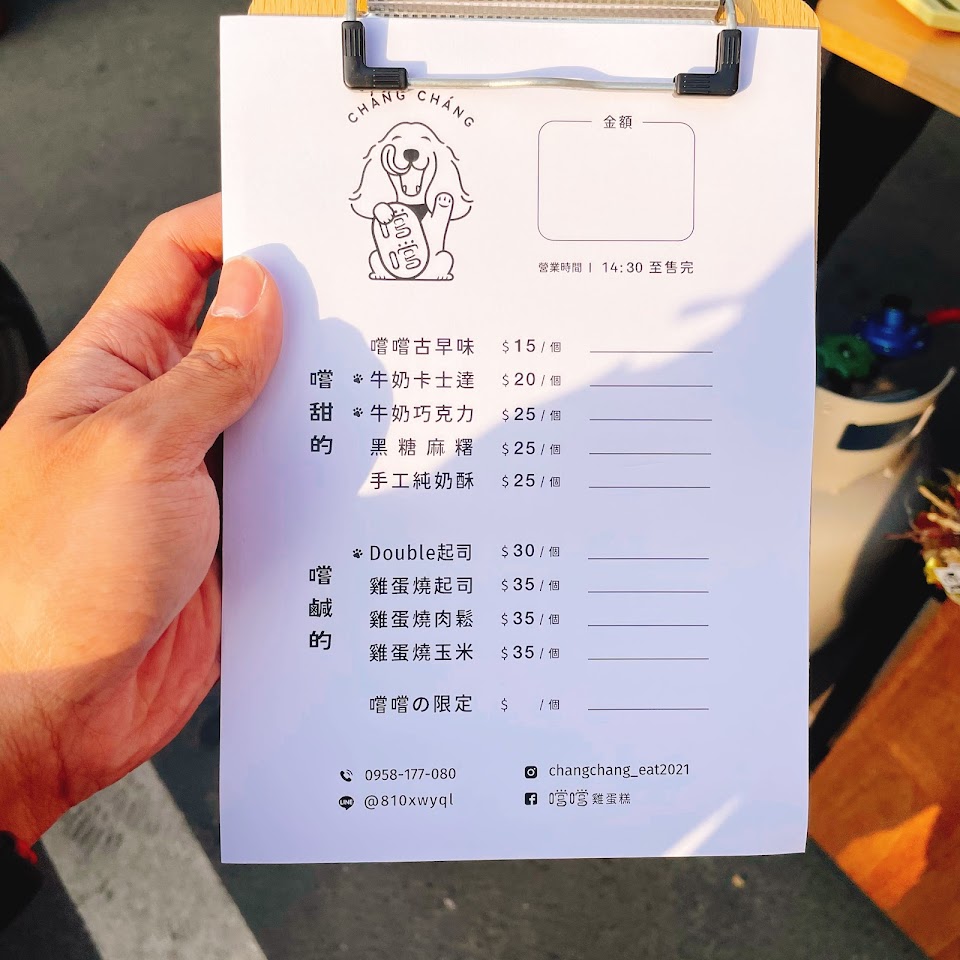 CHÁNG CHÁNG
嚐嚐
金額
營業時間 | 14:30 至售完
嚐甜的
嚐嚐古早味 $15 / 個
牛奶卡士達 $20 / 個
牛奶巧克力 $25 / 個
黑糖麻糬 $25 / 個
手工純奶酥 $25 / 個
嚐鹹的
Double起司 $30 / 個
雞蛋燒起司 $35 / 個
雞蛋燒肉鬆 $35 / 個
雞蛋燒玉米 $35 / 個
嚐嚐の限定 $ / 個
0958-177-080
changchang_eat2021
LINE @810xwyql
嚐嚐雞蛋糕